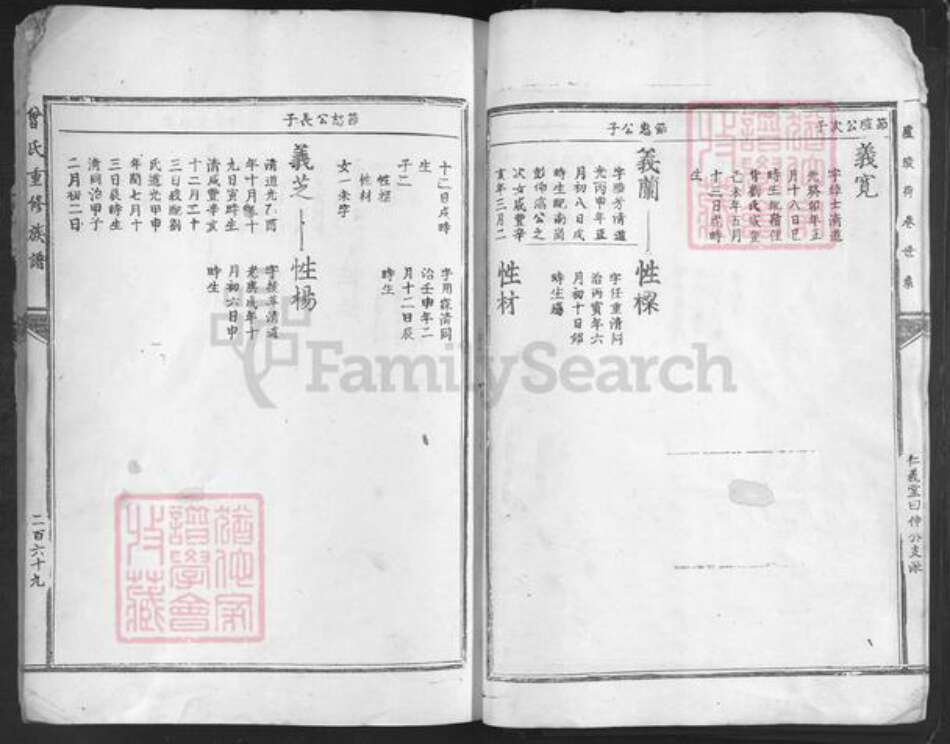 廬陵荷巷世系
仁義堂曰伸公支派
節瑄公次子
義寬
字綽士清道
光癸卯年正
月十八日巳
時生配藉俚
背劉氏咸豐
己未年五月
十二日亥時
生
節惠公子
義蘭
字勝芳清道
光丙申年正
月初八日戌
時生配南岡
彭伸瀛公之
次女咸豐辛
亥年三月二
性樑
字任重清同
治丙寅年六
月初十日卯
時生殤
性材
曾氏重修族譜
二百六十九
十二日戌時
生
子二
性樑
性材
女一未字
字用霖清同
治壬申年二
月十二日辰
時生
節恕公長子
義芝
清道光乃酉
年十月廿十
九日寅時生
清咸豐辛亥
十二月二十
三日歿配劉
氏道光甲申
年閏七月十
三日辰時生
清同治甲子
二月初二日
性楊
字後萃清道
光庚戌年十
月初六日申
時生
FamilySearch
譜學會
收藏